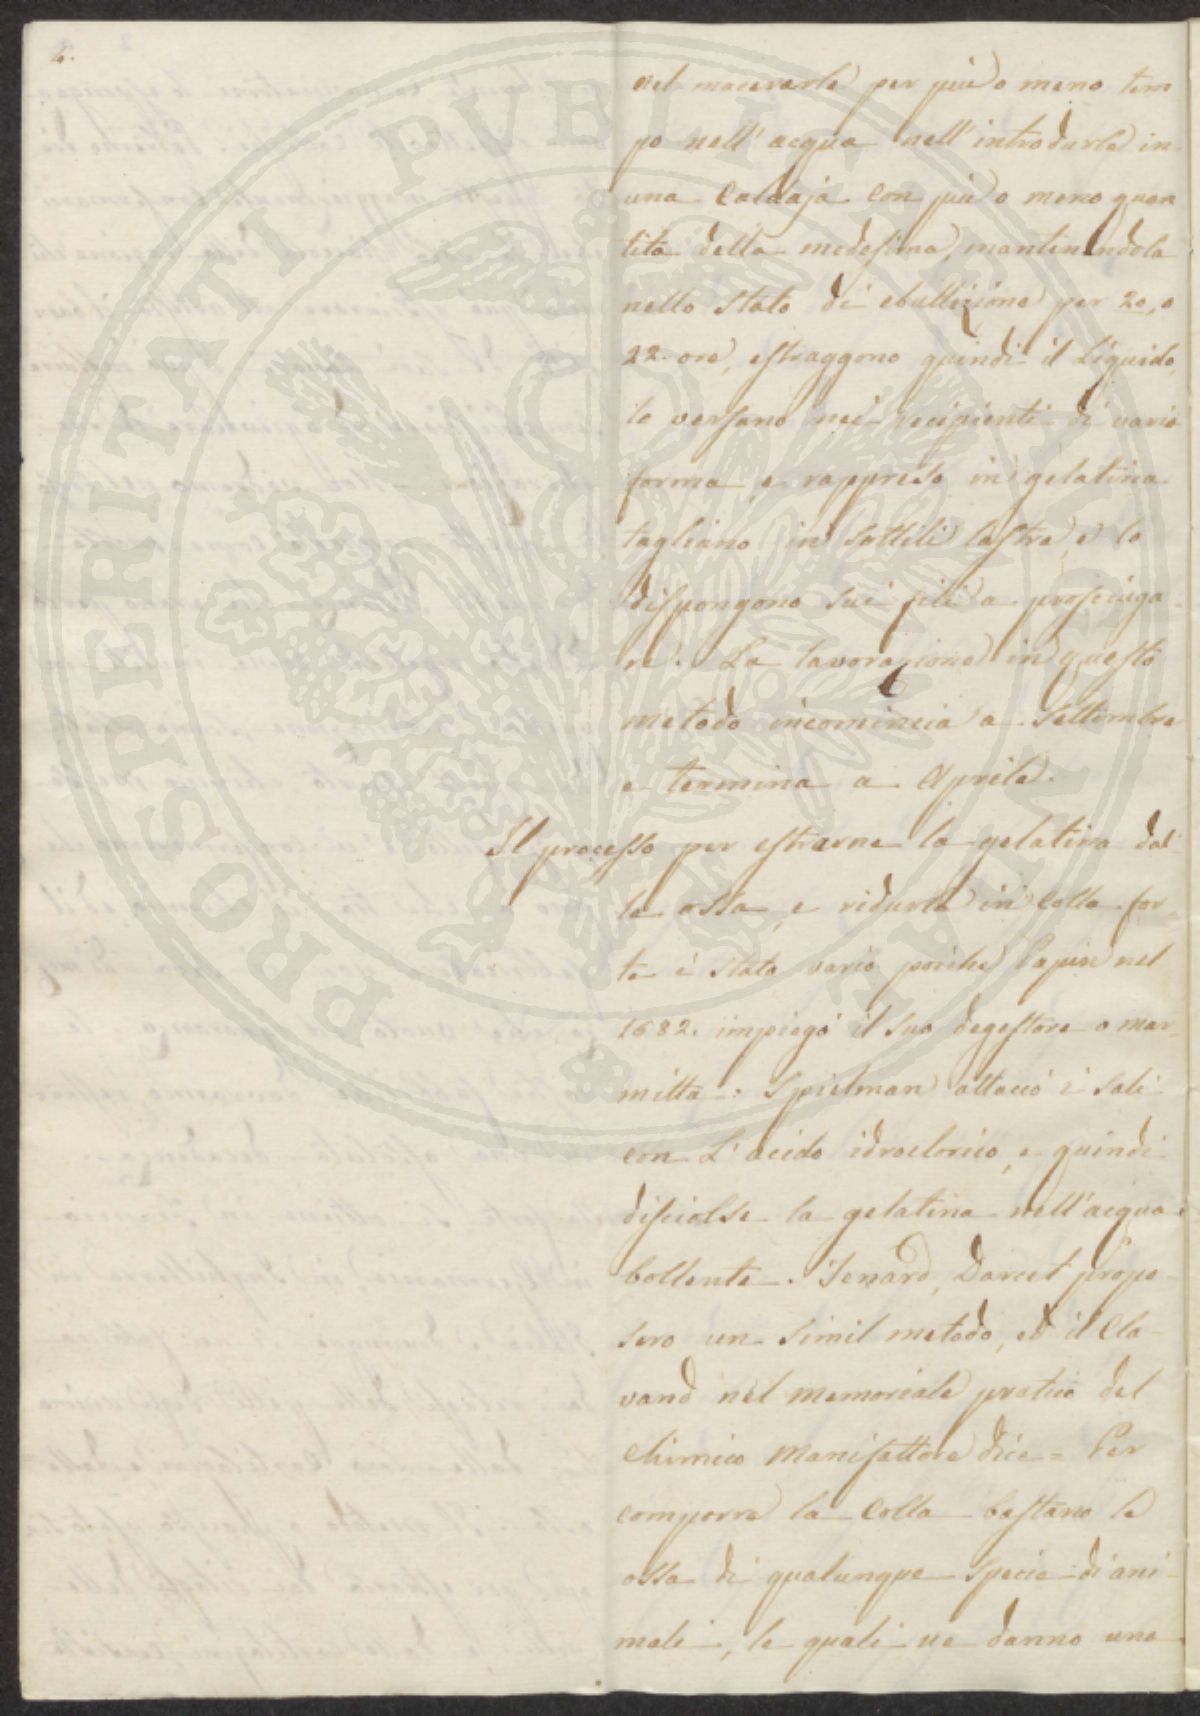 4.
nel macerarle per più o meno tem
po nell' acqua nell' introdurle in
una Caldaja con più o meno quan
tità della medesima, mantenendola
nello Stato di ebullizione per 20, o
22. ore, estraggono quindi il Liquido,
lo versano nei recipienti di varia
forma, e rappreso in gelatina
tagliano in sottili lastre, e lo
dispongono sui fili a prosciuga-
re. La lavorazione in questo
metodo incomincia a Settembre
e termina a Aprile.
Il processo per estrarne la gelatina dal-
le ossa, e ridurla in Colla for-
te è stato vario poiché Papin nel
1682. impiegò il suo degestore o mar-
mitta: Spielman attaccò i sali
con L' acido idroclorico, e quindi
disciolse la gelatina nell' acqua
bollente. Tenard, Darcet propo-
sero un simil metodo, ed il Cla-
vand nel memoriale pratico del
Chimico Manifattore dice = Per
comporre la Colla bastano le
ossa di qualunque specie di ani-
mali, le quali ne danno una
PROSPERITATI PUBLICAE AUGENDAE